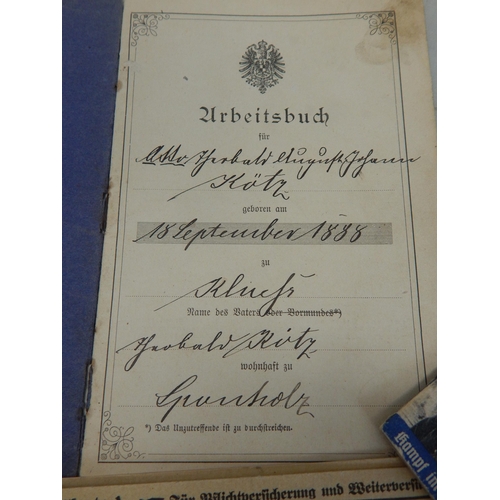 Arbeitsbuch
für
Otto Theobald August Johann
Kötz
geboren am
18 September 1888
zu
Kluess
Name des Vaters oder Vormundes*)
Theobald Kötz
wohnhaft zu
Sponholz
*) Das Unzutreffende ist zu durchstreichen.
Kampf im
Für Pflichtversicherung und Weiterversi